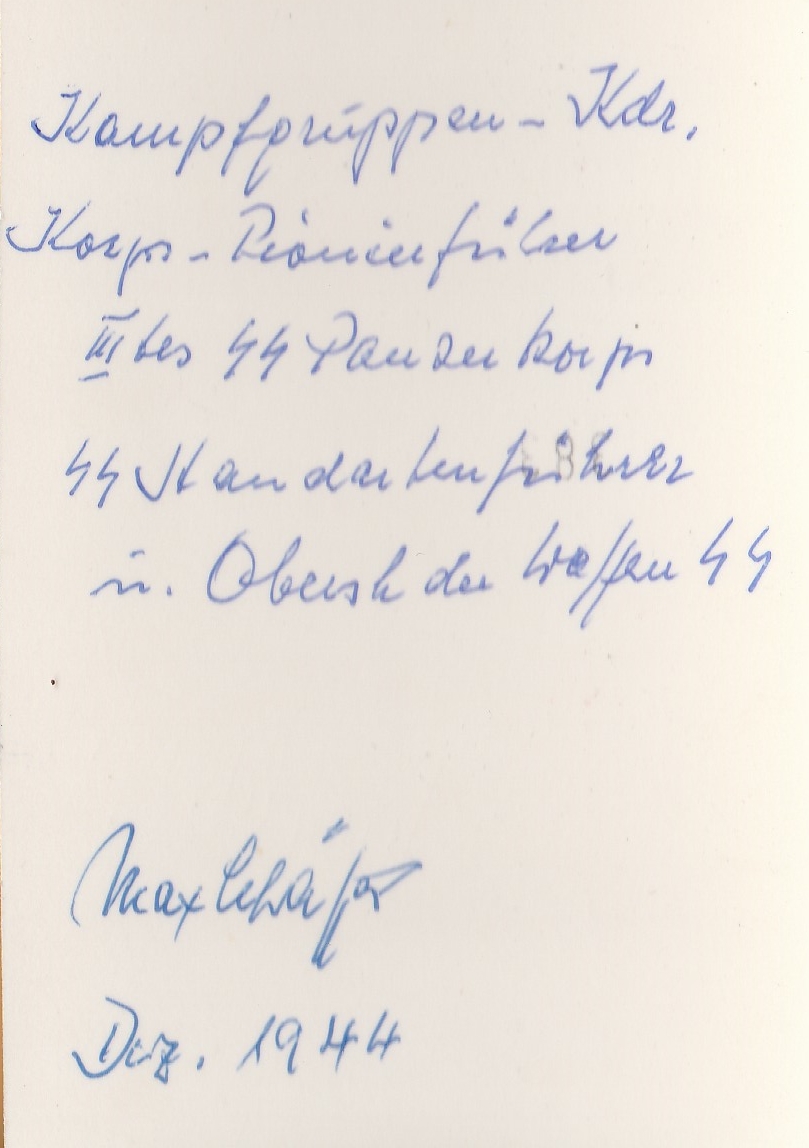 Kampfgruppen - Kdr.
Korps - Pionierführer
III tes SS Panzerkorps
SS Standartenführer
u. Oberst der Waffen SS
Max Schäfer
Dez. 1944